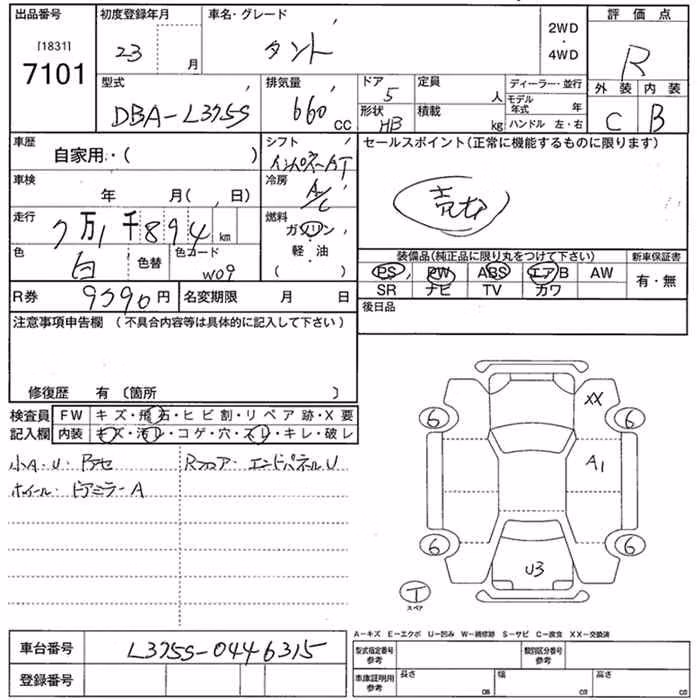 出品番号 初度登録年月 車名・グレード 2WD・4WD 評価点
[1831] 7101 23 月 タント R
型式 排気量 ドア 定員 ディーラー・並行 外装 内装
DBA-L375S 660 CC 5 人 モデル年式 年 C B
形状 HB 積載 kg ハンドル 左・右
車歴 自家用・( ) シフト インパネAT セールスポイント(正常に機能するものに限ります)
車検 年 月( 、日) 冷房 A/C
走行 7万1千894km 燃料 ガソリン・軽・油 ( )
色 白 色替 色コード W09
装備品(純正品に限り丸をつけて下さい) 新車保証書
PS PW ABS エアB AW 有・無
SR ナビ TV カワ
R券 9590円 名変期限 月 日 後日品
注意事項申告欄 (不具合内容等は具体的に記入して下さい)
修復歴 有 〔箇所 〕
検査員 FW キズ・飛石・ヒビ割・リペア跡・X要
記入欄 内装 キズ・汚レ・コゲ・穴・スレ・キレ・破レ
小A・U・Bアセ Rフロア・エンドパネルU
ホイール・ドアミラーA
XX
6 6
A1
6 6
U3
T
スペア
A-キズ E-エクボ U-凹み W-補修跡 S-サビ C-腐食 XX-交換済
車台番号 L375S-0446315 型式指定番号 参考 類別区分番号 参考
登録番号 車庫証明用 参考 長さ cm 幅 cm 高さ cm